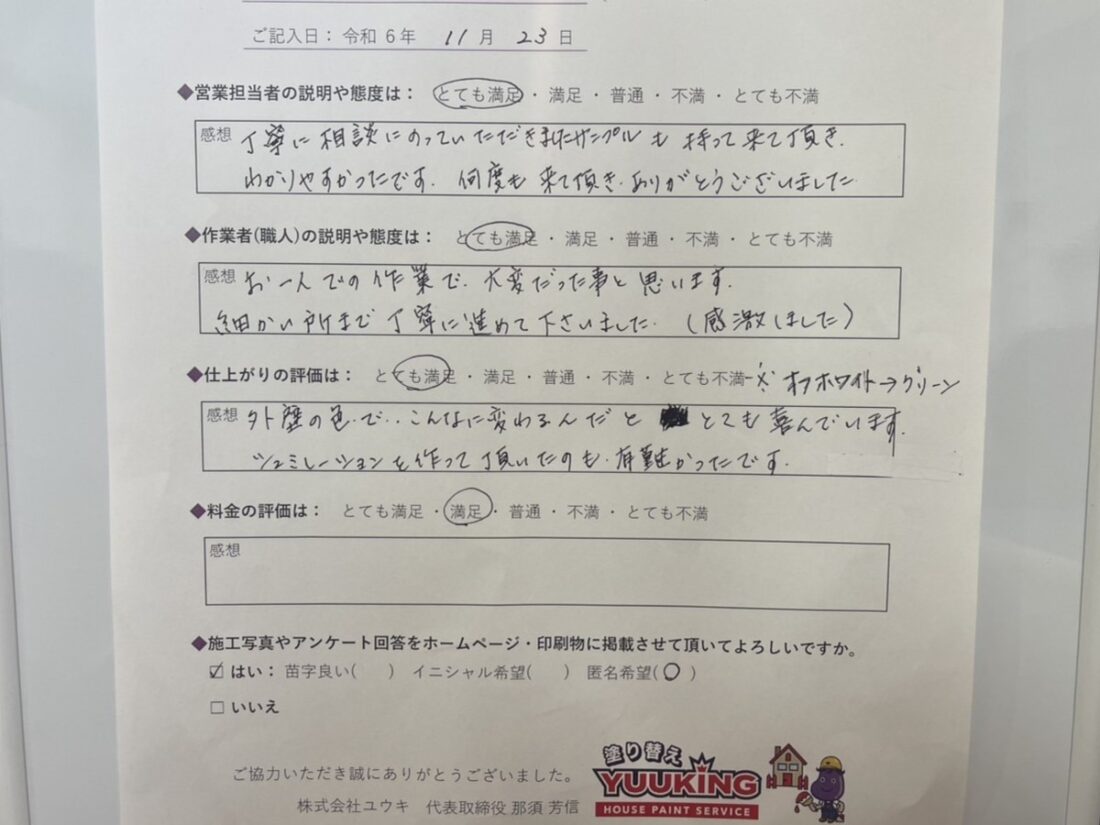 ご記入日：令和 6 年 11 月 23 日
◆営業担当者の説明や態度は： とても満足 ・ 満足 ・ 普通 ・ 不満 ・ とても不満
感想 丁寧に相談にのっていただきましたサンプルも 持って来て頂き.
わかりやすかったです. 何度も 来て頂き.ありがとうございました
◆作業者(職人)の説明や態度は： とても満足 ・ 満足 ・ 普通 ・ 不満 ・ とても不満
感想 お一人での作業で、大変だった事と思います.
細かい所まで丁寧に進めて下さいました. (感激しました)
◆仕上がりの評価は： とても満足 ・ 満足 ・ 普通 ・ 不満 ・ とても不満 ※ オフホワイト→グリーン
感想 外壁の色で..こんなに変わるんだと とても喜んでいます.
シュミレーションを作って頂いたのも.有難かったです.
◆料金の評価は： とても満足 ・ 満足 ・ 普通 ・ 不満 ・ とても不満
感想
◆施工写真やアンケート回答をホームページ・印刷物に掲載させて頂いてよろしいですか。
☑ はい： 苗字良い( ) イニシャル希望( ) 匿名希望(○)
□ いいえ
ご協力いただき誠にありがとうございました。
株式会社ユウキ 代表取締役 那須 芳信
塗り替え
YUUKING
HOUSE PAINT SERVICE